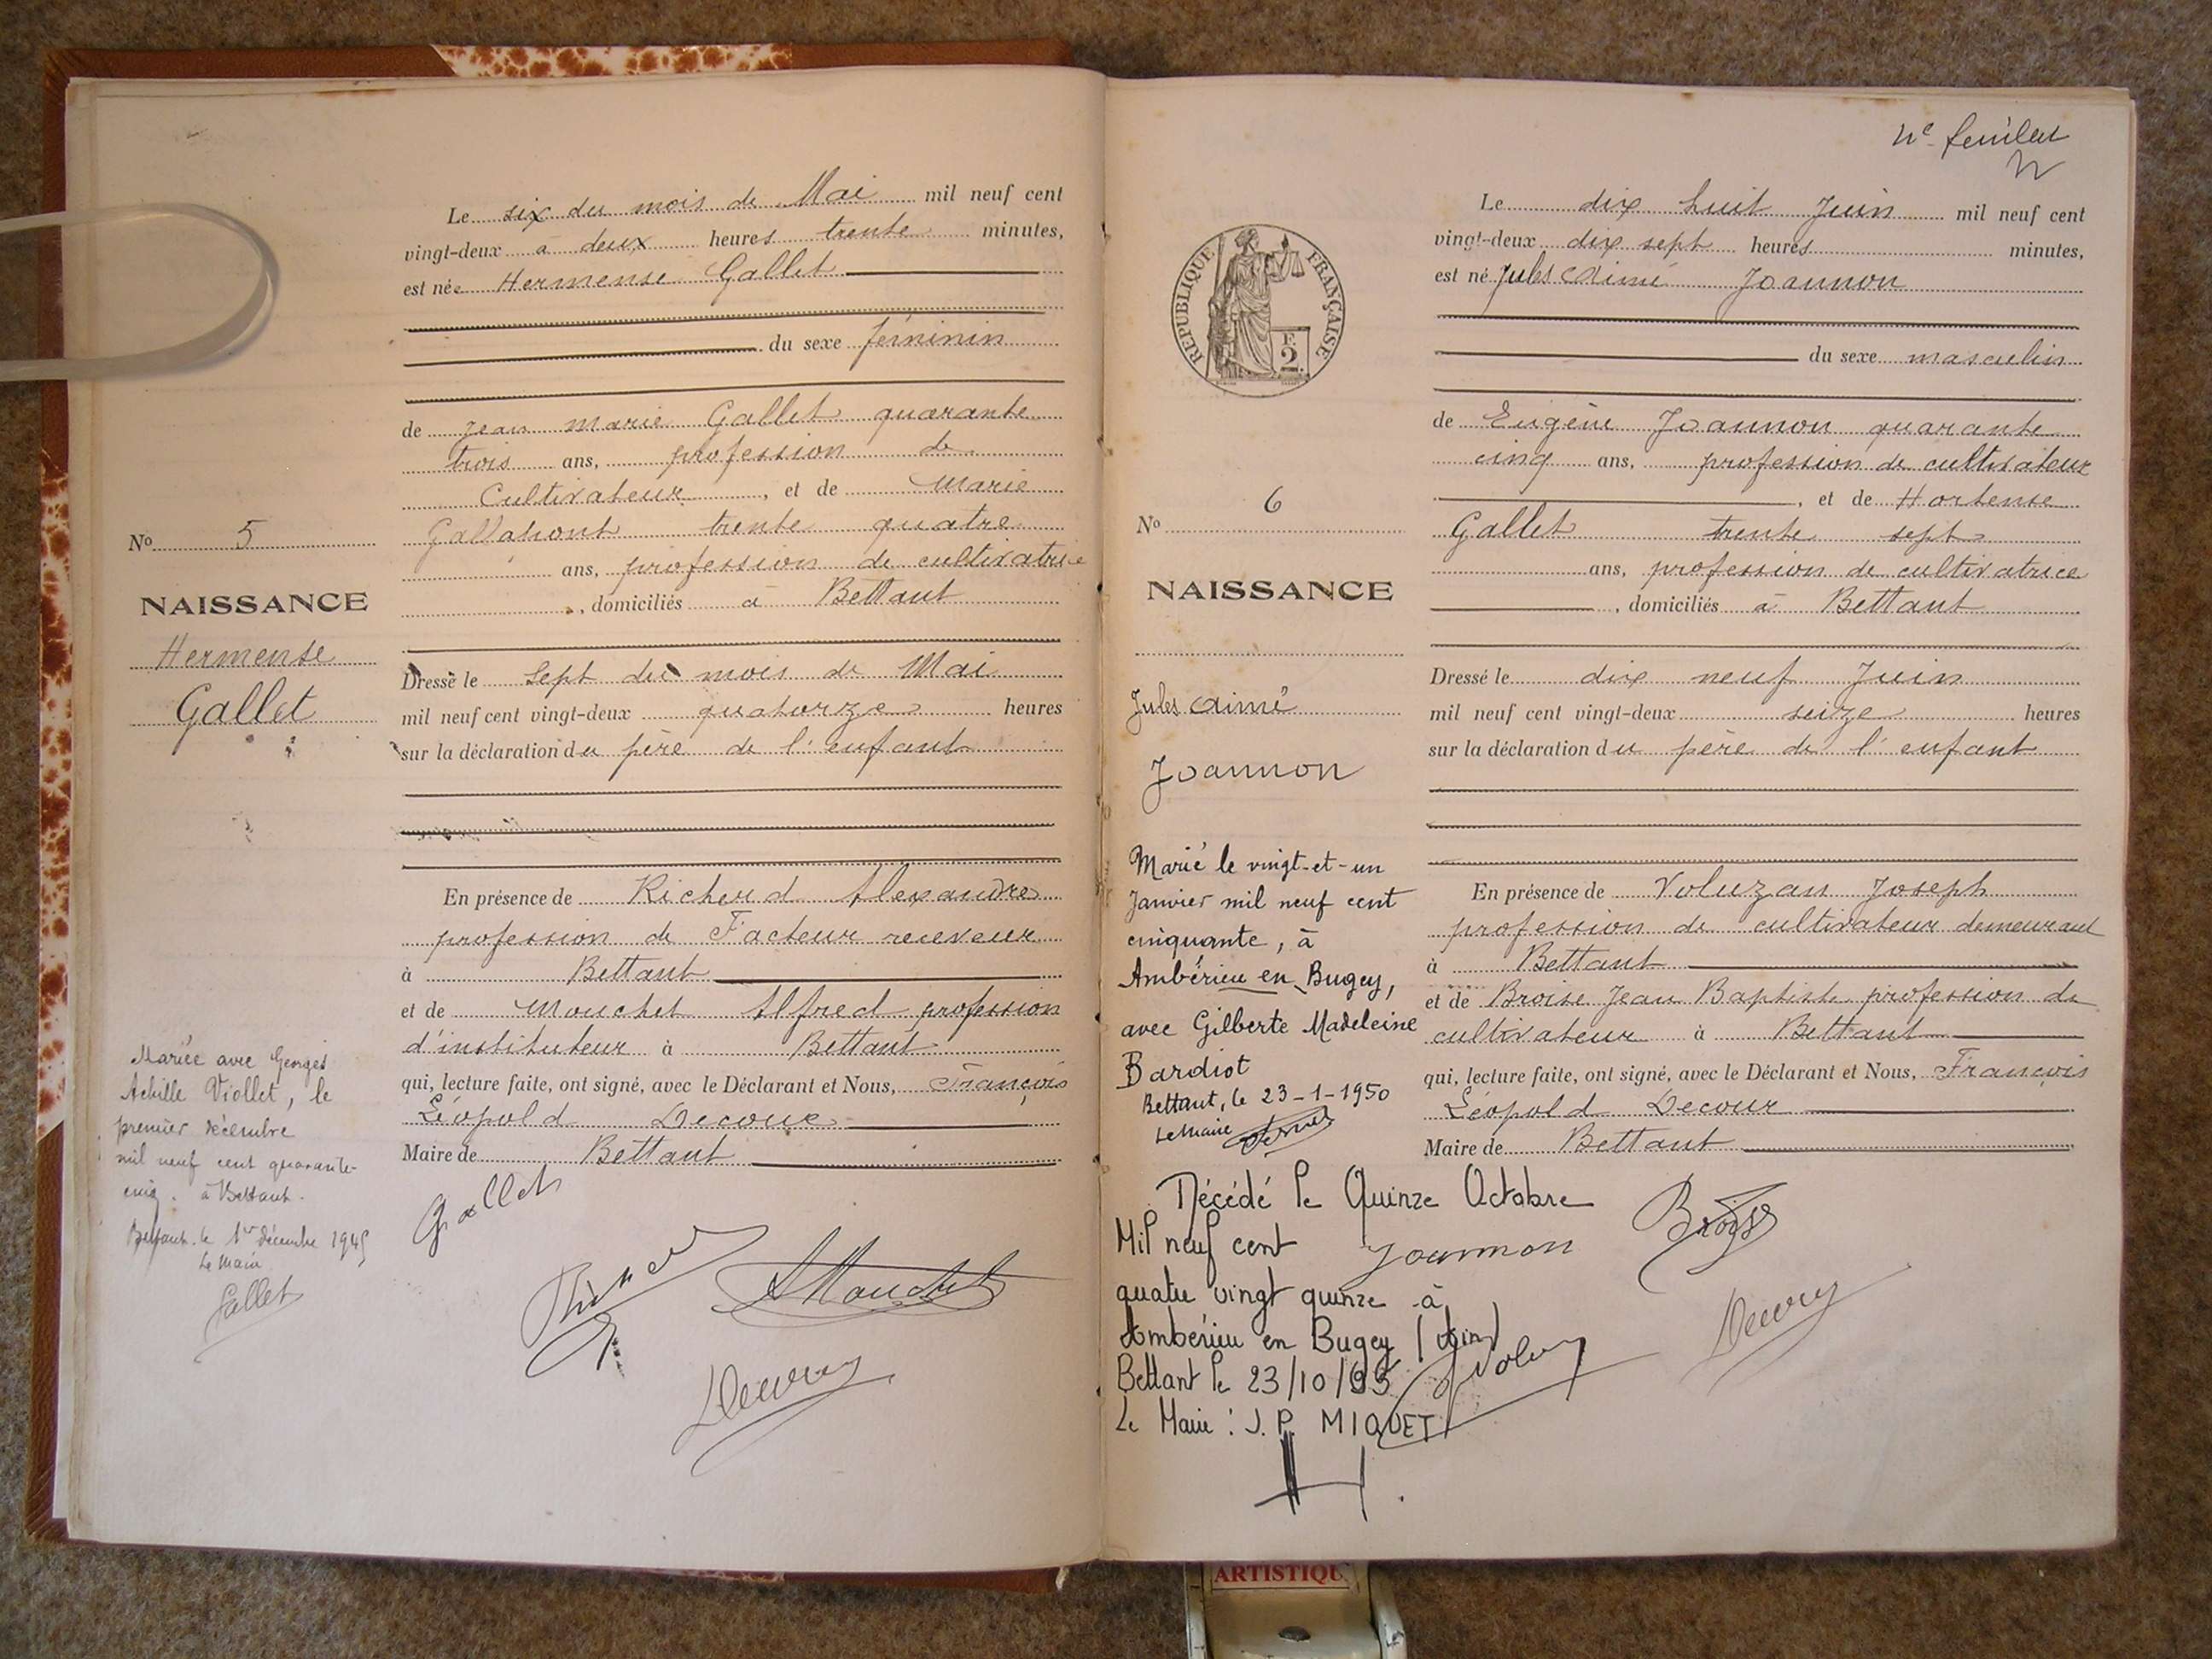 Le six du mois de Mai mil neuf cent
vingt-deux à deux heures trente minutes,
est née Hermense Gallet
du sexe féminin
de Jean marie Gallet quarante
trois ans, profession de
Cultivateur, et de Marie
trente quatre
ans, profession de cultivatrice
, domiciliés à Bettant
No 5
NAISSANCE
Hermense
Gallet
Dressé le sept du mois de Mai
mil neuf cent vingt-deux quatorze heures
sur la déclaration du père de l'enfant
En présence de Richerd Alexandre
profession de Facteur receveur
à Bettant
et de Mouchet Alfred profession
d'instituteur à Bettant
qui, lecture faite, ont signé, avec le Déclarant et Nous, François
Léopold Decour
Maire de Bettant
Mariée avec Georges
Achille Viollet, le
premier décembre
mil neuf cent quarante-
cinq. à Bettant.
Bettant. le 1er décembre 1945
Le Maire
Gallet
Gallet
AMouchet
2e feuillet
Le dix huit Juin mil neuf cent
vingt-deux dix sept heures minutes,
est né Jules Aimé Joannon
RÉPUBLIQUE FRANÇAISE
F.
2
du sexe masculin
de Eugène Joannon quarante
cinq ans, profession de cultivateur
, et de Hortense
Gallet trente sept
ans, profession de cultivatrice
, domiciliés à Bettant
No 6
NAISSANCE
Jules Aimé
Joannon
Dressé le dix neuf Juin
mil neuf cent vingt-deux seize heures
sur la déclaration du père de l'enfant
En présence de Voluzan Joseph
profession de cultivateur demeurant
à Bettant
et de Broise Jean Baptiste profession de
cultivateur à Bettant
qui, lecture faite, ont signé, avec le Déclarant et Nous, François
Léopold Decour
Maire de Bettant
Marié le vingt-et-un
Janvier mil neuf cent
cinquante, à
Ambérieu en Bugey,
avec Gilberte Madeleine
Bardiot
Bettant, le 23-1-1950
Le Maire
Décédé le Quinze Octobre
Mil neuf cent
quatre vingt quinze à
Ambérieu en Bugey (Ain)
Bettant le 23/10/95
Le Maire : J.P. MIQUET
Joannon
Broise
ARTISTIQU